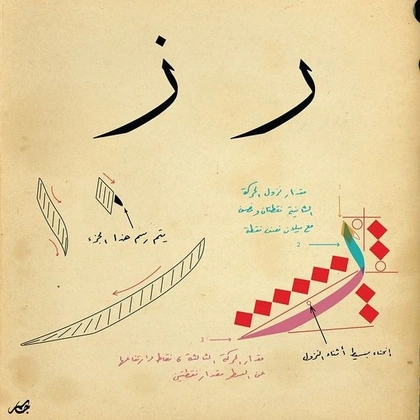 ر ز
مقدار نزول الحركة
الثانية نقطتان ونصف
مع ميلان نصف نقطة
يتم رسم هذا الجزء
1
2
3
إنحناء بسيط أثناء النزول
مقدار الحركة الثالثة ٦ نقاط وارتفاعها
عن السطر مقدار نقطتين